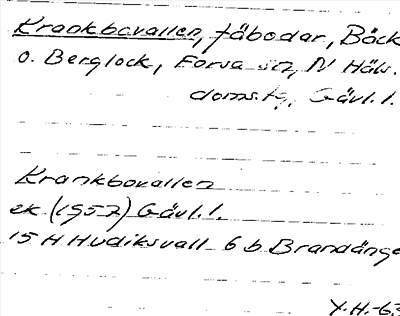 Krankbovallen, fäbodar, Bäck
o. Berglock, Forsa sn, N Häls.
doms.tg, Gävl.l.
Krankbovallen
ek. (1957) Gävl.l.
15 H Hudiksvall 6 b Brandänge
Y.H.-63